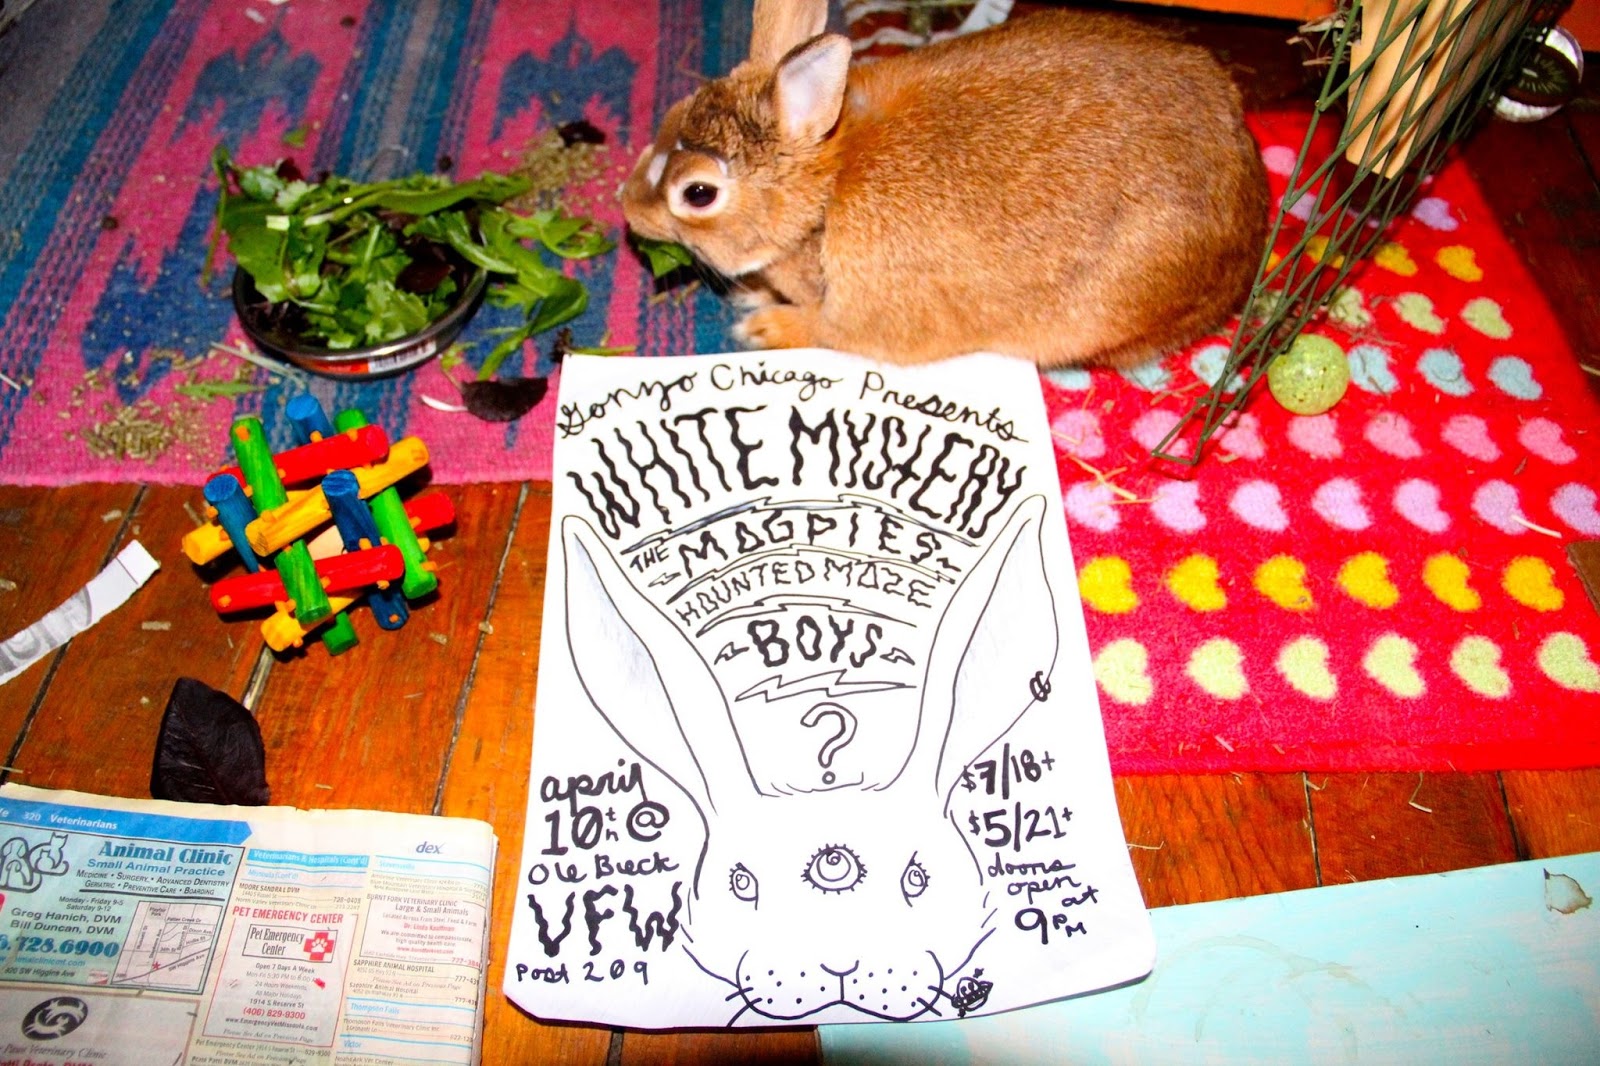 Gonzo Chicago Presents
WHITE MYSTERY
THE MAGPIES
HOUNTED MAZE
BOYS
?
april
10th @
Ole Beck
VFW
Post 209
$7/18+
$5/21+
doors
open
at
9PM
320 Veterinarians
dex
Animal Clinic
Small Animal Practice
Medicine • Surgery • Advanced Dentistry
Geriatric • Preventive Care • Boarding
Monday - Friday 9-5
Saturday 9-12
Greg Hanich, DVM
Bill Duncan, DVM
728.6900
800 SW Higgins Ave
Veterinarians & Hospitals (Cont'd)
MOORE SANDRA J DVM
PET EMERGENCY CENTER
Pet Emergency
Center
Open 7 Days A Week
1914 S Reserve St
(406) 829-9300
www.EmergencyVetMissoula.com
Please See Ad on Preceding Page
BURNT FORK VETERINARY CLINIC
Large & Small Animals
Dr. Linda Kauffman
SAPPHIRE ANIMAL HOSPITAL
Thompson Falls
Victor